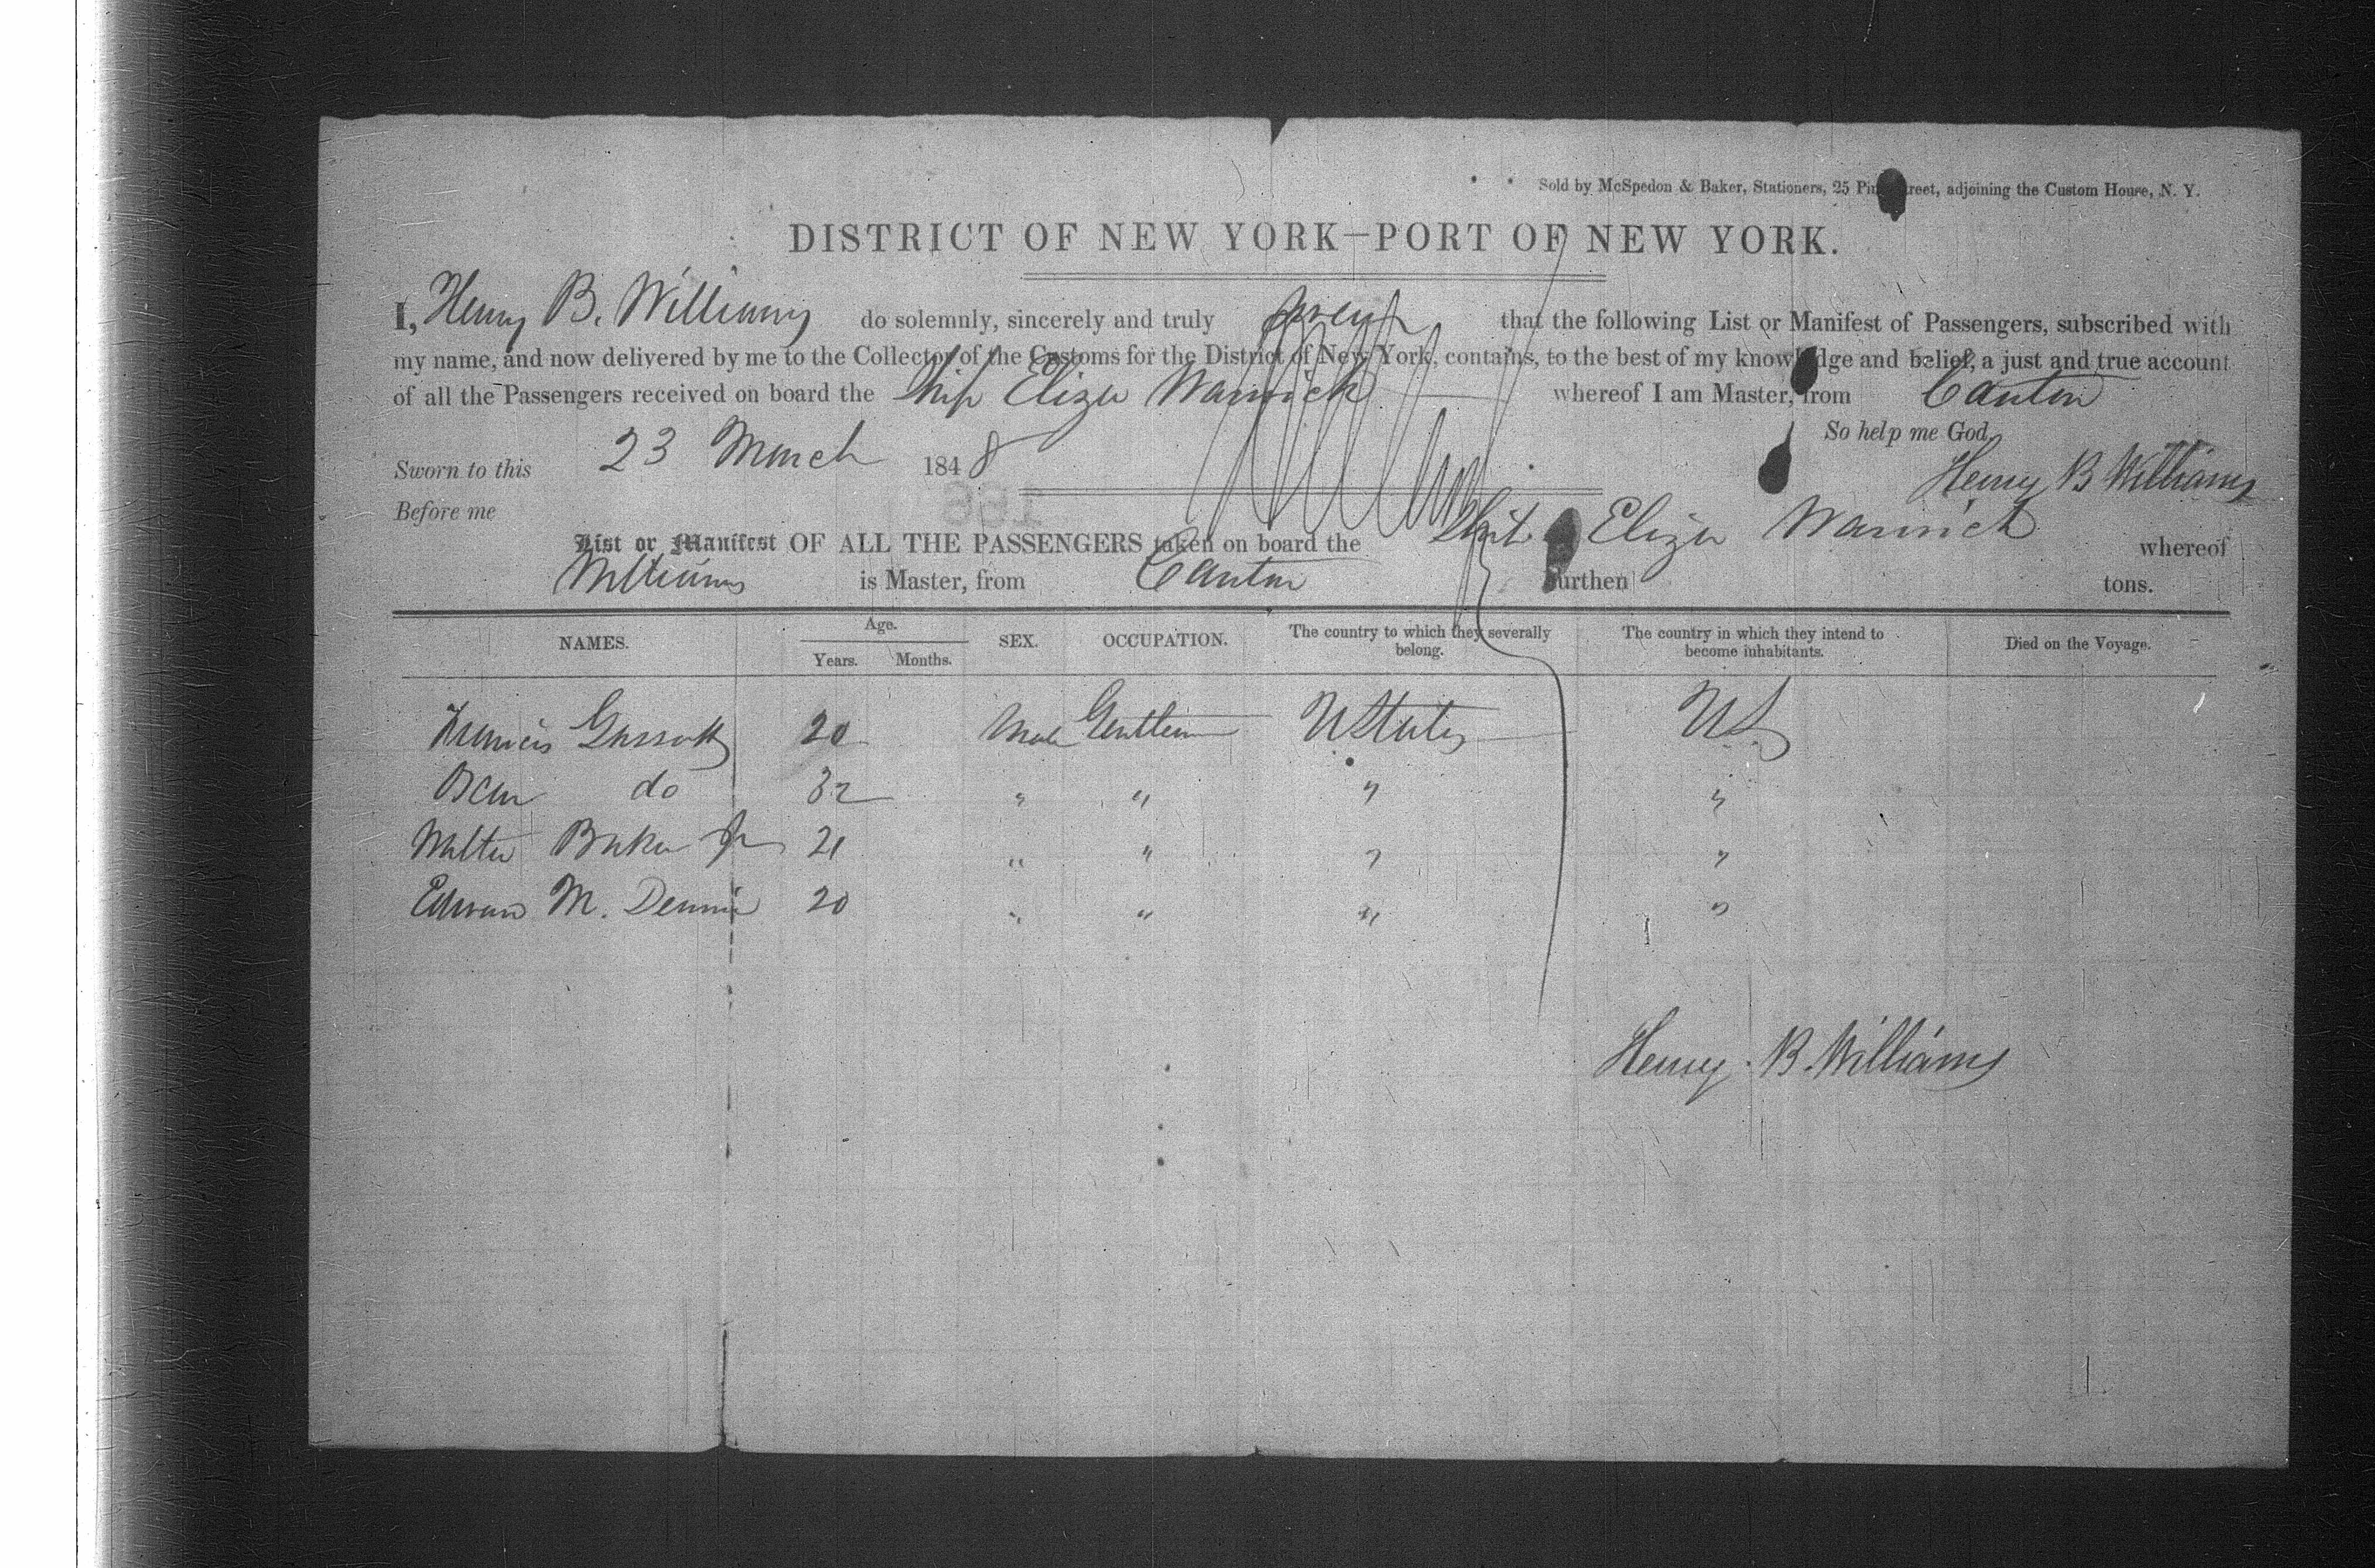 Sold by McSpedon & Baker, Stationers, 25 Pine Street, adjoining the Custom House, N. Y.
DISTRICT OF NEW YORK—PORT OF NEW YORK.
I, Henry B. Williams do solemnly, sincerely and truly swear that the following List or Manifest of Passengers, subscribed with
my name, and now delivered by me to the Collector of the Customs for the District of New York, contains, to the best of my knowledge and belief, a just and true account
of all the Passengers received on board the Ship Eliza Warwick whereof I am Master, from Canton
So help me God.
Sworn to this 23 March 1848
Henry B Williams
Before me
List or Manifest OF ALL THE PASSENGERS taken on board the Ship Eliza Warwick whereof
Williams is Master, from Canton burthen tons.
NAMES. Age. Years. Months. SEX. OCCUPATION. The country to which they severally belong. The country in which they intend to become inhabitants. Died on the Voyage.
Francis 20 Male Gentlem U States U S
Oscar do 32 " " " "
Walter Baker Jr 21 " " " "
Edward M. Dennie 20 " " " "
Henry B. Williams